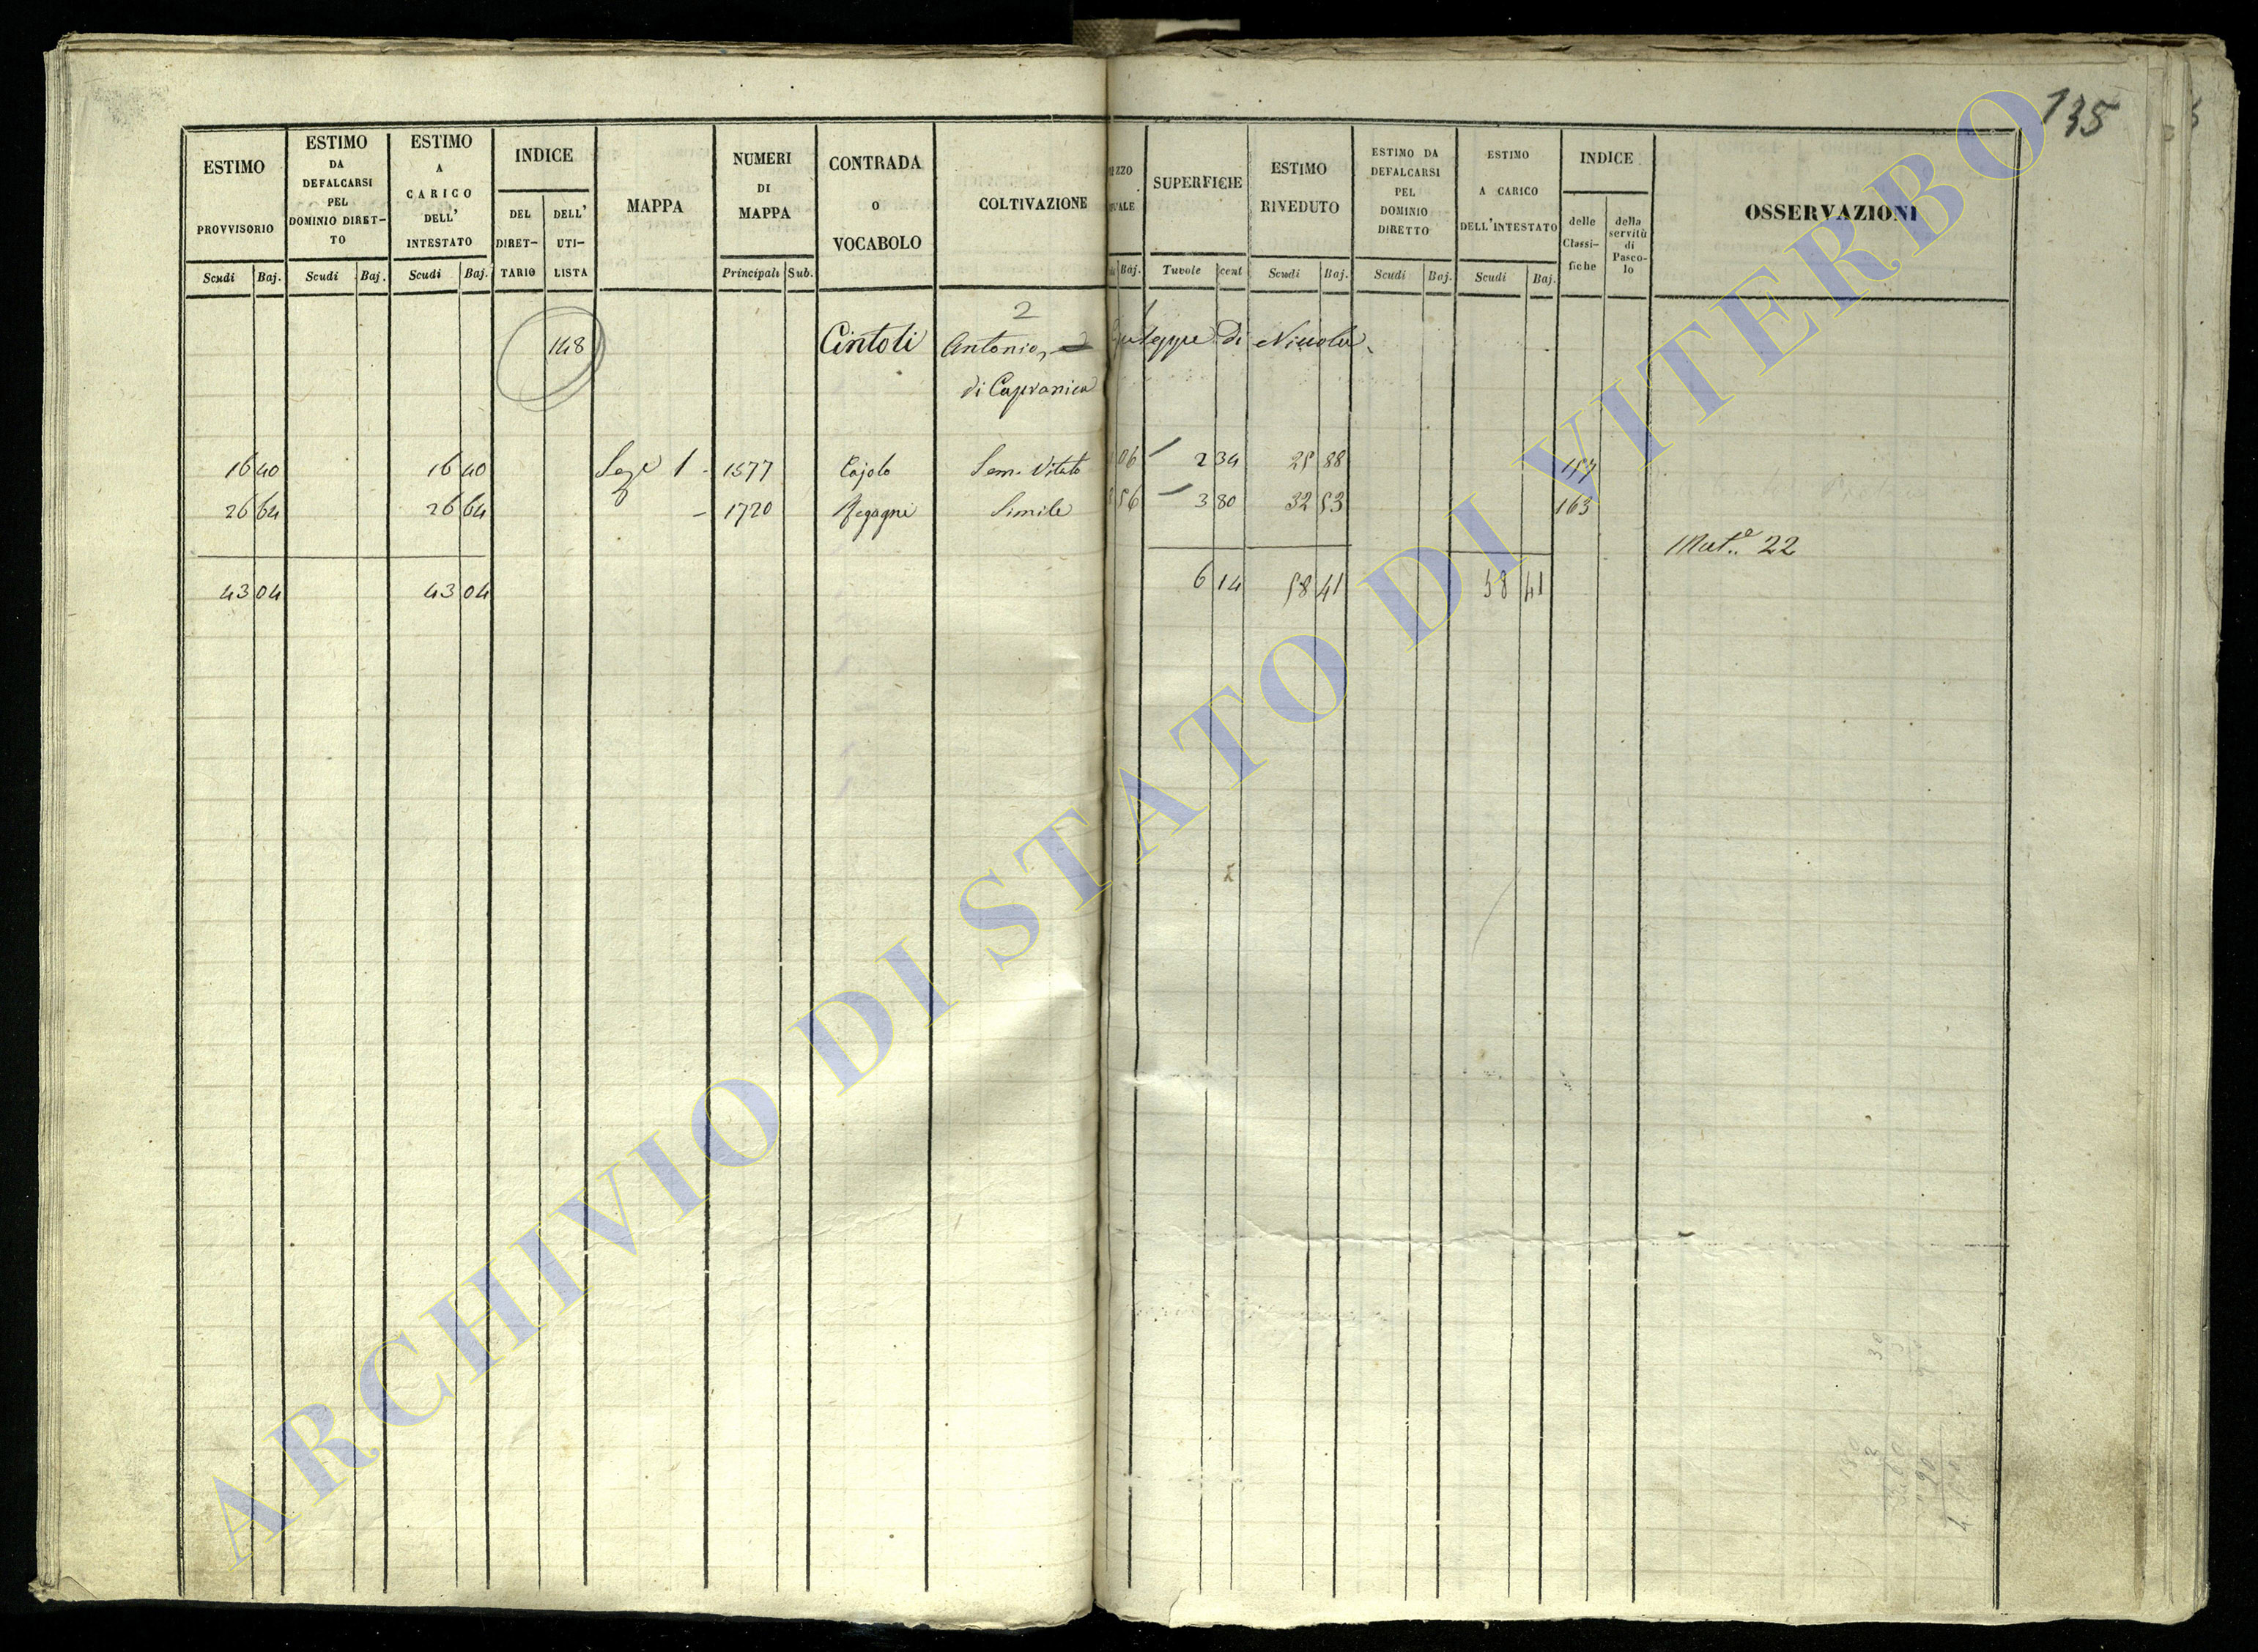 135
ESTIMO PROVVISORIO
ESTIMO DA DEFALCARSI PEL DOMINIO DIRET-TO
ESTIMO A CARICO DELL' INTESTATO
INDICE
DEL DIRET-TARIO
DELL' UTI-LISTA
MAPPA
NUMERI DI MAPPA
CONTRADA O VOCABOLO
COLTIVAZIONE
SUPERFICIE
ESTIMO RIVEDUTO
ESTIMO DA DEFALCARSI PEL DOMINIO DIRETTO
ESTIMO A CARICO DELL'INTESTATO
INDICE
delle Classi-fiche
della servitù di Pasco-lo
OSSERVAZIONI
Scudi Baj. Scudi Baj. Scudi Baj. Principali Sub. Baj. Tavole cent Scudi Baj. Scudi Baj. Scudi Baj.
2
148 Cintoli Antonio, Giuseppe di Niccola
di Capranica
16 40 16 40 Sez.e 1 - 1577 Cajolo Sem. Vitato 06 2 34 25 88 157
26 64 26 64 - 1720 Simile 56 3 80 32 53 163
Mat.e 22
43 04 43 04 6 14 58 41 58 41
ARCHIVIO DI STATO DI VITERBO